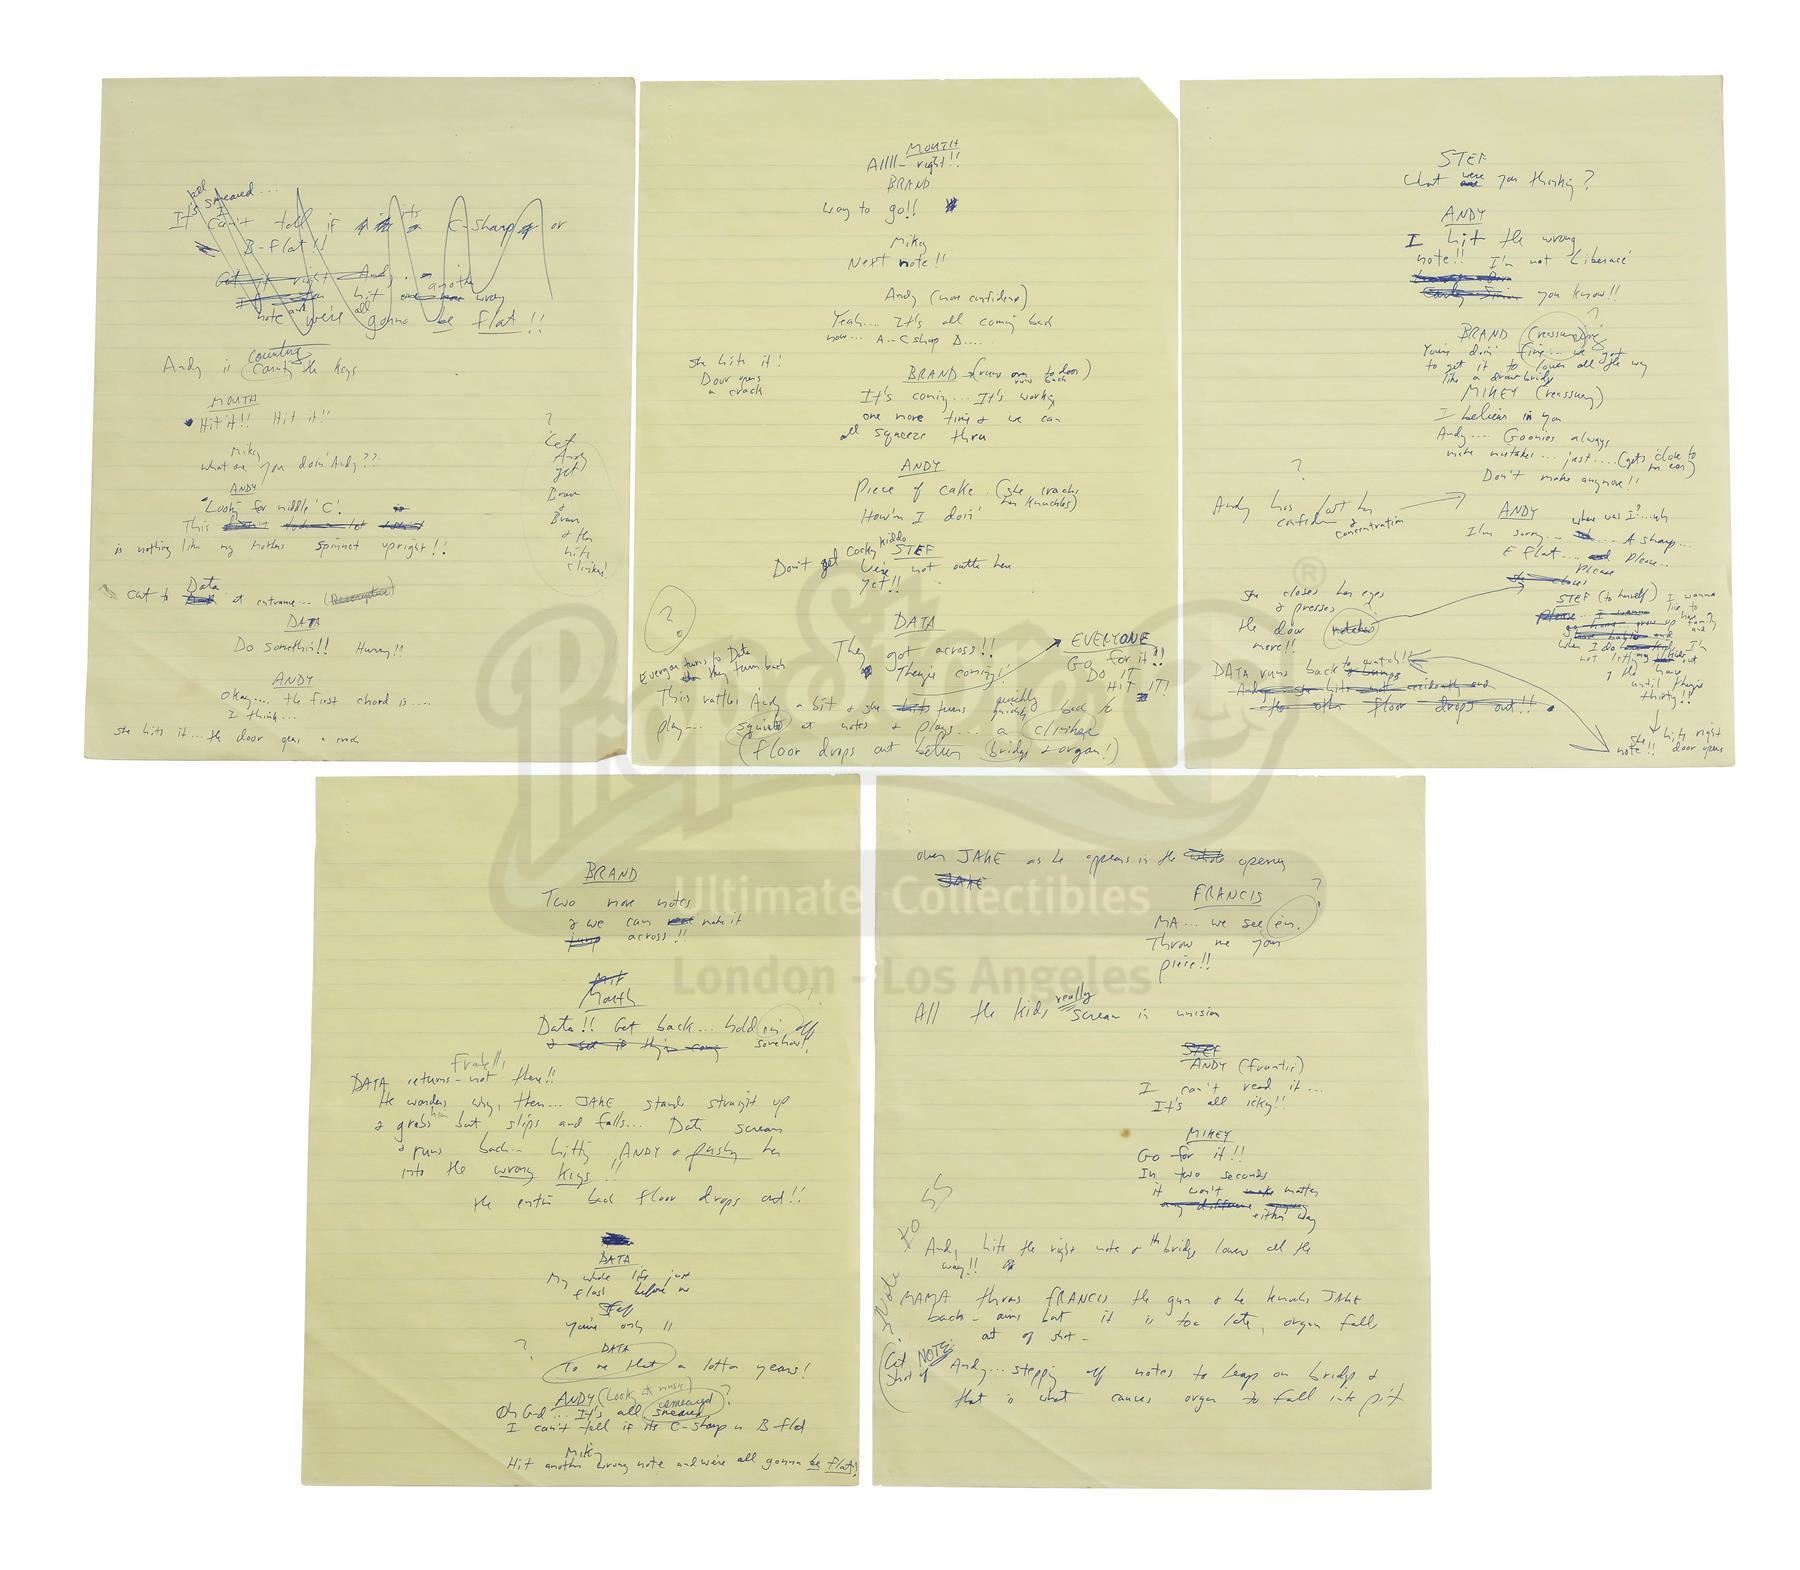 all smeared...
It's I can't tell if it's C-sharp or
B-flat!!
Get it right Andy.
hit another wrong
note and we're all gonna be flat!!
counting
Andy is the keys
MOUTH
Hit it!! Hit it!!
Mikey
what are you doin' Andy??
ANDY
Lookin for middle 'C'.
This
is nothing like my mothers spinnet upright!!
?
Let
Andy
get
Brav
&
Brav
& then
hits
clinker!
cut to Data at entrance...
DATA
Do somethin!! Hurry!!
ANDY
okay.... the first chord is....
I think...
she hits it... the door opens a crack
MOUTH
Allll- right!!
BRAND
Way to go!!
Mikey
Next note!!
Andy (more confidence)
Yeah.... It's all coming back
now... A--C sharp D.....
she hits it!
Door opens
a crack
BRAND (runs over to door)
runs back
It's coming... It's working
one more time & we can
all squeeze thru
ANDY
Piece of cake. (she cracks
her knuckles)
How'm I doin'
STEF
Don't get cocky kiddo
We're not outta here
yet!!
?
DATA
They got across!!
They're coming!
EVERYONE
Go for it!!
DO IT
HIT IT!
Everyone turns to Data
then they turn back
This rattles Andy a bit & she turns quickly back to
play.... squints at notes & plays.... a clinker
(floor drops out between bridge & organ!)
STEF
What were you thinking?
ANDY
I hit the wrong
note!! I'm not Liberace
you know!!
?
BRAND (reassuring)
You're doin' fine... we got
to get it to lower all the way
like a drawbridge
MIKEY (reassuring)
I believe in you
Andy.... Goonies always
make mistakes... just.... (gets close to
her ear)
Don't make anymore!!
?
Andy has lost her
confidence & concentration
ANDY
I'm sorry... where was I?...uh
A sharp...
E flat.... Please..
Please
she closes her eyes
& presses
the door notches
more!!
she closes
STEF (to herself) I wanna
like to
have
family
and
please... I wanna
go home... grow up
have babies and
when I do have kids I'm
not letting out
of the house
until they're
thirty!!
she hits right
note!! door opens
DATA runs back to watch!!
Andy she hits not accidently and
the other floor drops out!!
BRAND
Two more notes
& we can make it
jump across!!
Mouth
Data!! Get back... hold em off
& see if they're coming somehow!
Fratelli
DATA returns - not there!!
He wonders why, then... JAKE stands straight up
& grabs him but slips and falls... Data screams
& runs back... hitting ANDY & pushing her
into the wrong keys!!
The entire back floor drops out!!
DATA
My whole life just
flash before m
Stef
You're only 11
?
DATA
To me that a lotta years!
ANDY (Looks at music)
Oh G-d... It's all smeared
?
I can't tell if it's C-sharp or B flat
Mikey
Hit another wrong note and we're all gonna be flat!
over JAKE as he appears in the opening
JAKE
FRANCIS
?
MA... we see em.
Throw me your
piece!!
All the kids really scream in unision
STEF
ANDY (frantic)
I can't read it...
It's all icky!!
MIKEY
Go for it!!
In two seconds
it won't make matter
any difference either way
Andy hits the right note & the bridge lowers all the
way!!
MAMA throws FRANCIS the gun & he knocks JAKE
back - aims but it is too late, organ falls
out of shot -
NOTE:
Andy... stepping off notes to leap on bridge &
that is what causes organ to fall into pit
PropStore
®
Ultimate Collectibles
London - Los Angeles